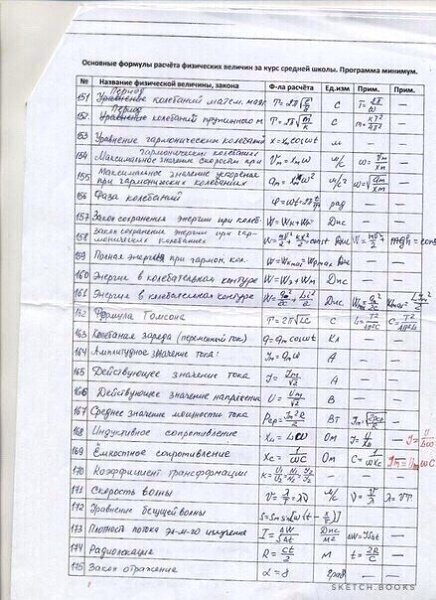 Основные формулы расчёта физических величин за курс средней школы. Программа минимум.
№ Название физической величины, закона Ф-ла расчёта Ед.изм Прим. Прим.
Период
151 Уравнение колебаний матем. маят T=2π√ℓ/g с T=2π/ω —
Период
152 Уравнение колебаний пружинного м T=2π√m/k с m=kT²/4π² —
153 Уравнение гармонических колебаний x=xₘcosωt м — —
гармонических колебаний
154 Максимальное значение скорости при Vₘ=xₘω м/с ω=Vₘ/xₘ —
155 Максимальное значение ускорения при гармонических колебаниях aₘ=xₘω² м/с² ω=√aₘ/xₘ —
156 Фаза колебаний рад — —
157 Закон сохранения энергии при колеб. W=Wк+Wп Дж — —
158 Закон сохранения энергии при гармонических колебаниях
159 Полная энергия при гармон. кол. Дж — —
160 Энергия в колебательном контуре W=Wэ+Wм Дж — —
161 Энергия в колебательном контуре Дж
162 Формула Томсона T=2π√LC с
163 Колебания заряда (переменный ток) q=qₘcosωt Кл — —
164 Амплитудное значение тока: Iₘ=qₘω А — —
165 Действующее значение тока I=Iₘ/√2 А — —
166 Действующее значение напряжения U=Uₘ/√2 В — —
167 Среднее значение мощности тока Pср=Iₘ²R/2 Вт —
168 Индуктивное сопротивление X_L=Lω Ом
169 Ёмкостное сопротивление Xc=1/ωC Ом C=1/ωXc Iₘ=UₘωC
170 Коэффициент трансформации K=U₁/U₂=N₁/N₂ — — —
171 Скорость волны V=λ/T=λν м/с ν=V/λ λ=VT
172 Уравнение бегущей волны S=Sₘsin[ω(t-x/v)] — —
173 Плотность потока эл-м-го излучения I=ΔW/SΔt ΔW=ISΔt —
174 Радиолокация R=ct/2 м t=2R/c —
175 Закон отражения град — —
SKETCH.BOOKS